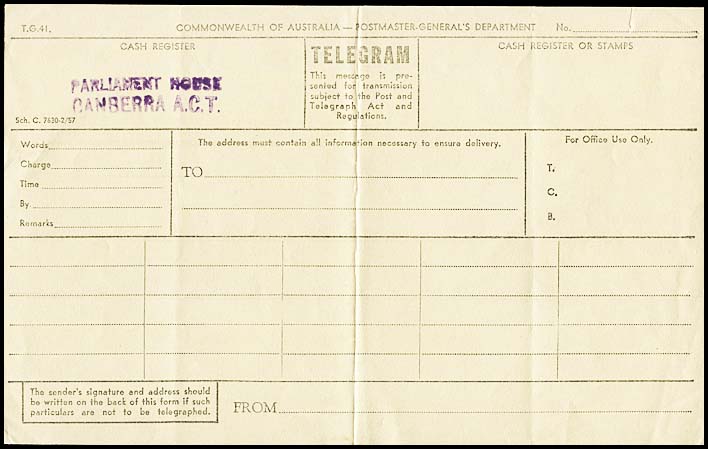 T.G.41.
COMMONWEALTH OF AUSTRALIA — POSTMASTER-GENERAL'S DEPARTMENT
No.
CASH REGISTER
PARLIAMENT HOUSE
CANBERRA A.C.T.
Sch. C. 7630-2/57
TELEGRAM
This message is pre-
sented for transmission
subject to the Post and
Telegraph Act and
Regulations.
CASH REGISTER OR STAMPS
Words
Charge
Time
By
Remarks
The address must contain all information necessary to ensure delivery.
TO
For Office Use Only.
T.
C.
B.
The sender's signature and address should
be written on the back of this form if such
particulars are not to be telegraphed.
FROM